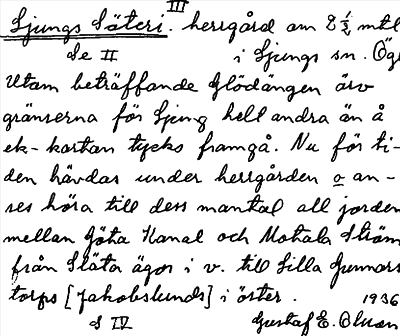 III
Ljungs Säteri. herrgård om 2 1/2 mtl
Se II i Ljungs sn. Ög
Utom beträffande Glödängen äro
gränserna för Ljung helt andra än å
ek-kartan tycks framgå. Nu för ti-
den hävdas under herrgården o an-
ses höra till dess mantal all jorden
mellan Göta Kanal och Motala Ström
från Släta ägor i v. till Lilla Gunnors
torps [Jakobslunds] i öster. 1936
S IV Gustaf E. Olsson